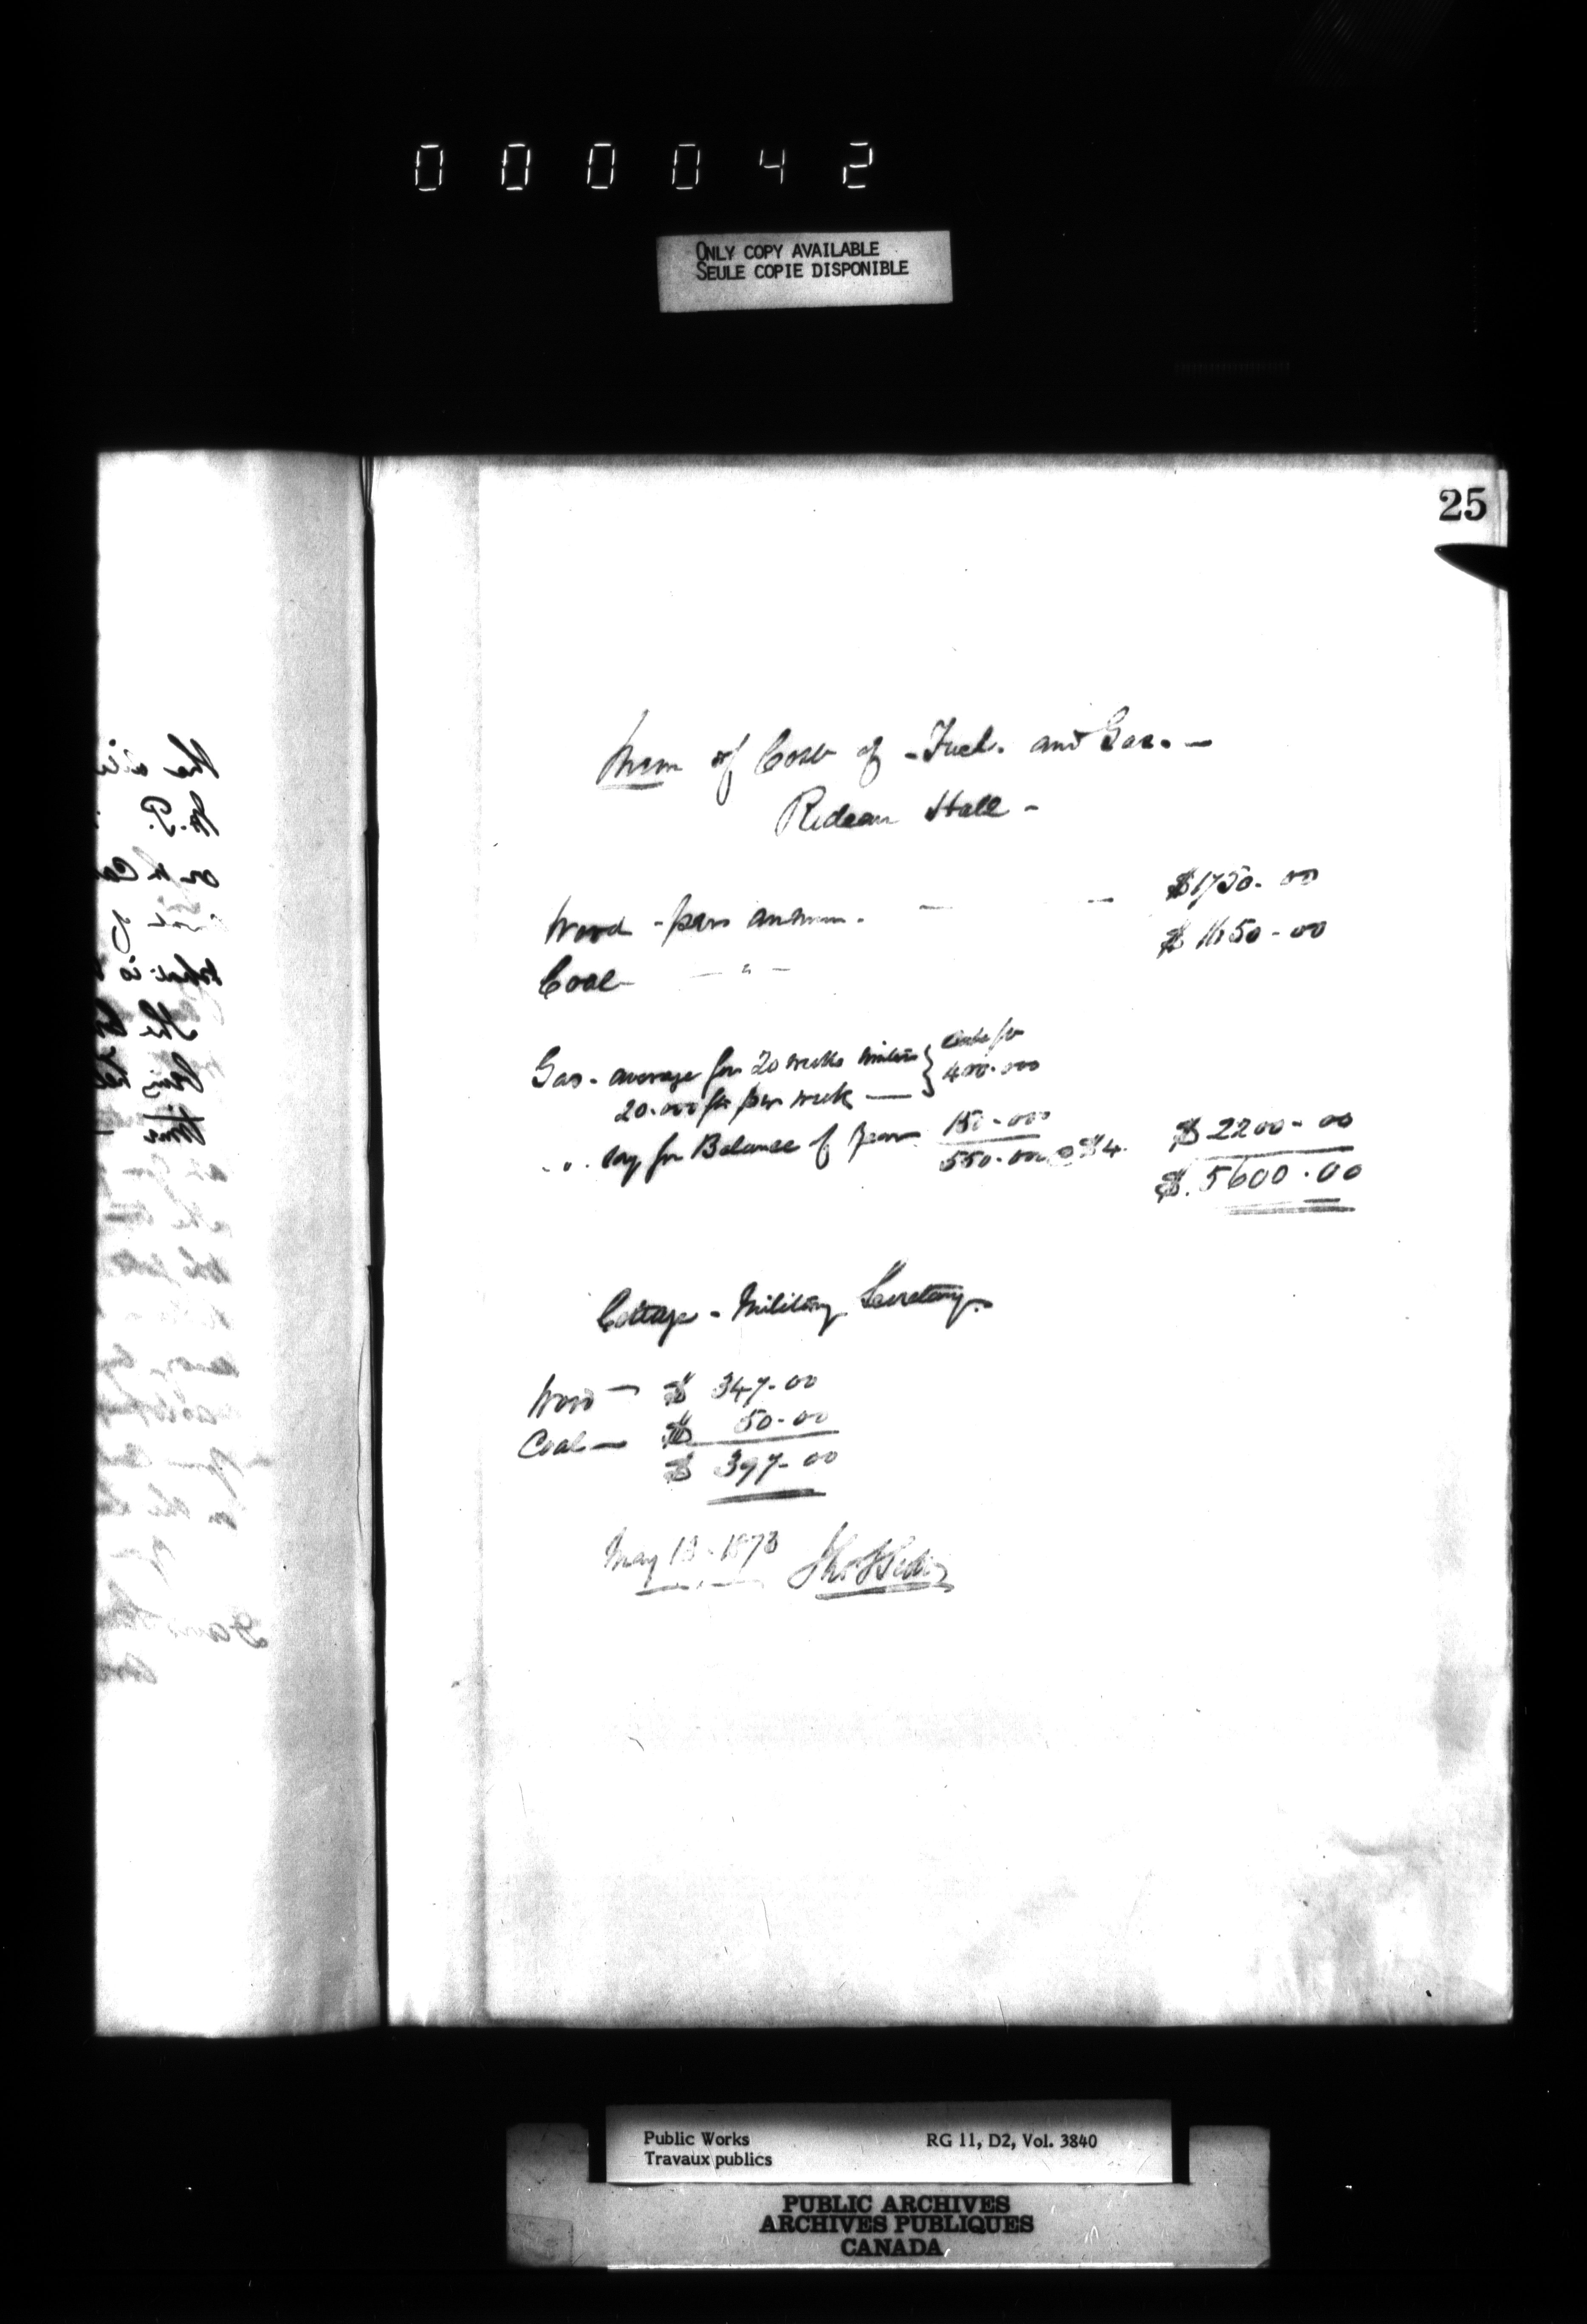 000042
ONLY COPY AVAILABLE
SEULE COPIE DISPONIBLE
25
Mem of Cost of - Fuel. and Gas. -
Rideau Hall -
Wood - per annum. - - $1750.00
Coal - " - $1650-00
Gas - average for 20 weeks winter } Cubic ft
20.000 ft per week — 400.000
" . say for Balance of year 150-000
550.000 @ $4. $2200-00
$.5600.00
Cottage - Military Secretary.
Wood - $ 347-00
Coal - $ 50-00
$ 397-00
May 13-1873
Public Works RG 11, D2, Vol. 3840
Travaux publics
PUBLIC ARCHIVES
ARCHIVES PUBLIQUES
CANADA